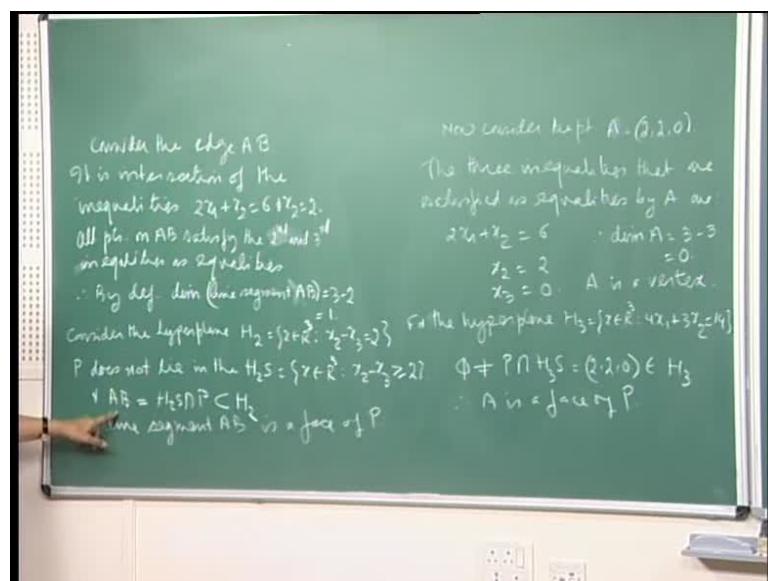 Consider the edge AB
It is intersection of the
inequalities 2x₁+x₂=6 + x₂=2.
All pts. on AB satisfy the 2nd and 3rd
inequalities as equalities
∴ By def. dim (line segment AB)=3-2
=1.
Consider the hyperplane H₂={x∈R³: x₂-x₃=2}
P does not lie in the H₂S={x∈R³: x₂-x₃≥2}
& AB = H₂S∩P ⊂ H₂
line segment AB is a face of P
Now consider the pt A=(2,2,0).
The three inequalities that are
satisfied as equalities by A are
2x₁+x₂=6 ∴ dim A=3-3
=0.
x₂=2
x₃=0. A is a vertex.
For the hyperplane H₃={x∈R³: 4x₁+3x₂=14}
Φ≠P∩H₃S=(2,2,0)∈H₃
∴ A is a face of P